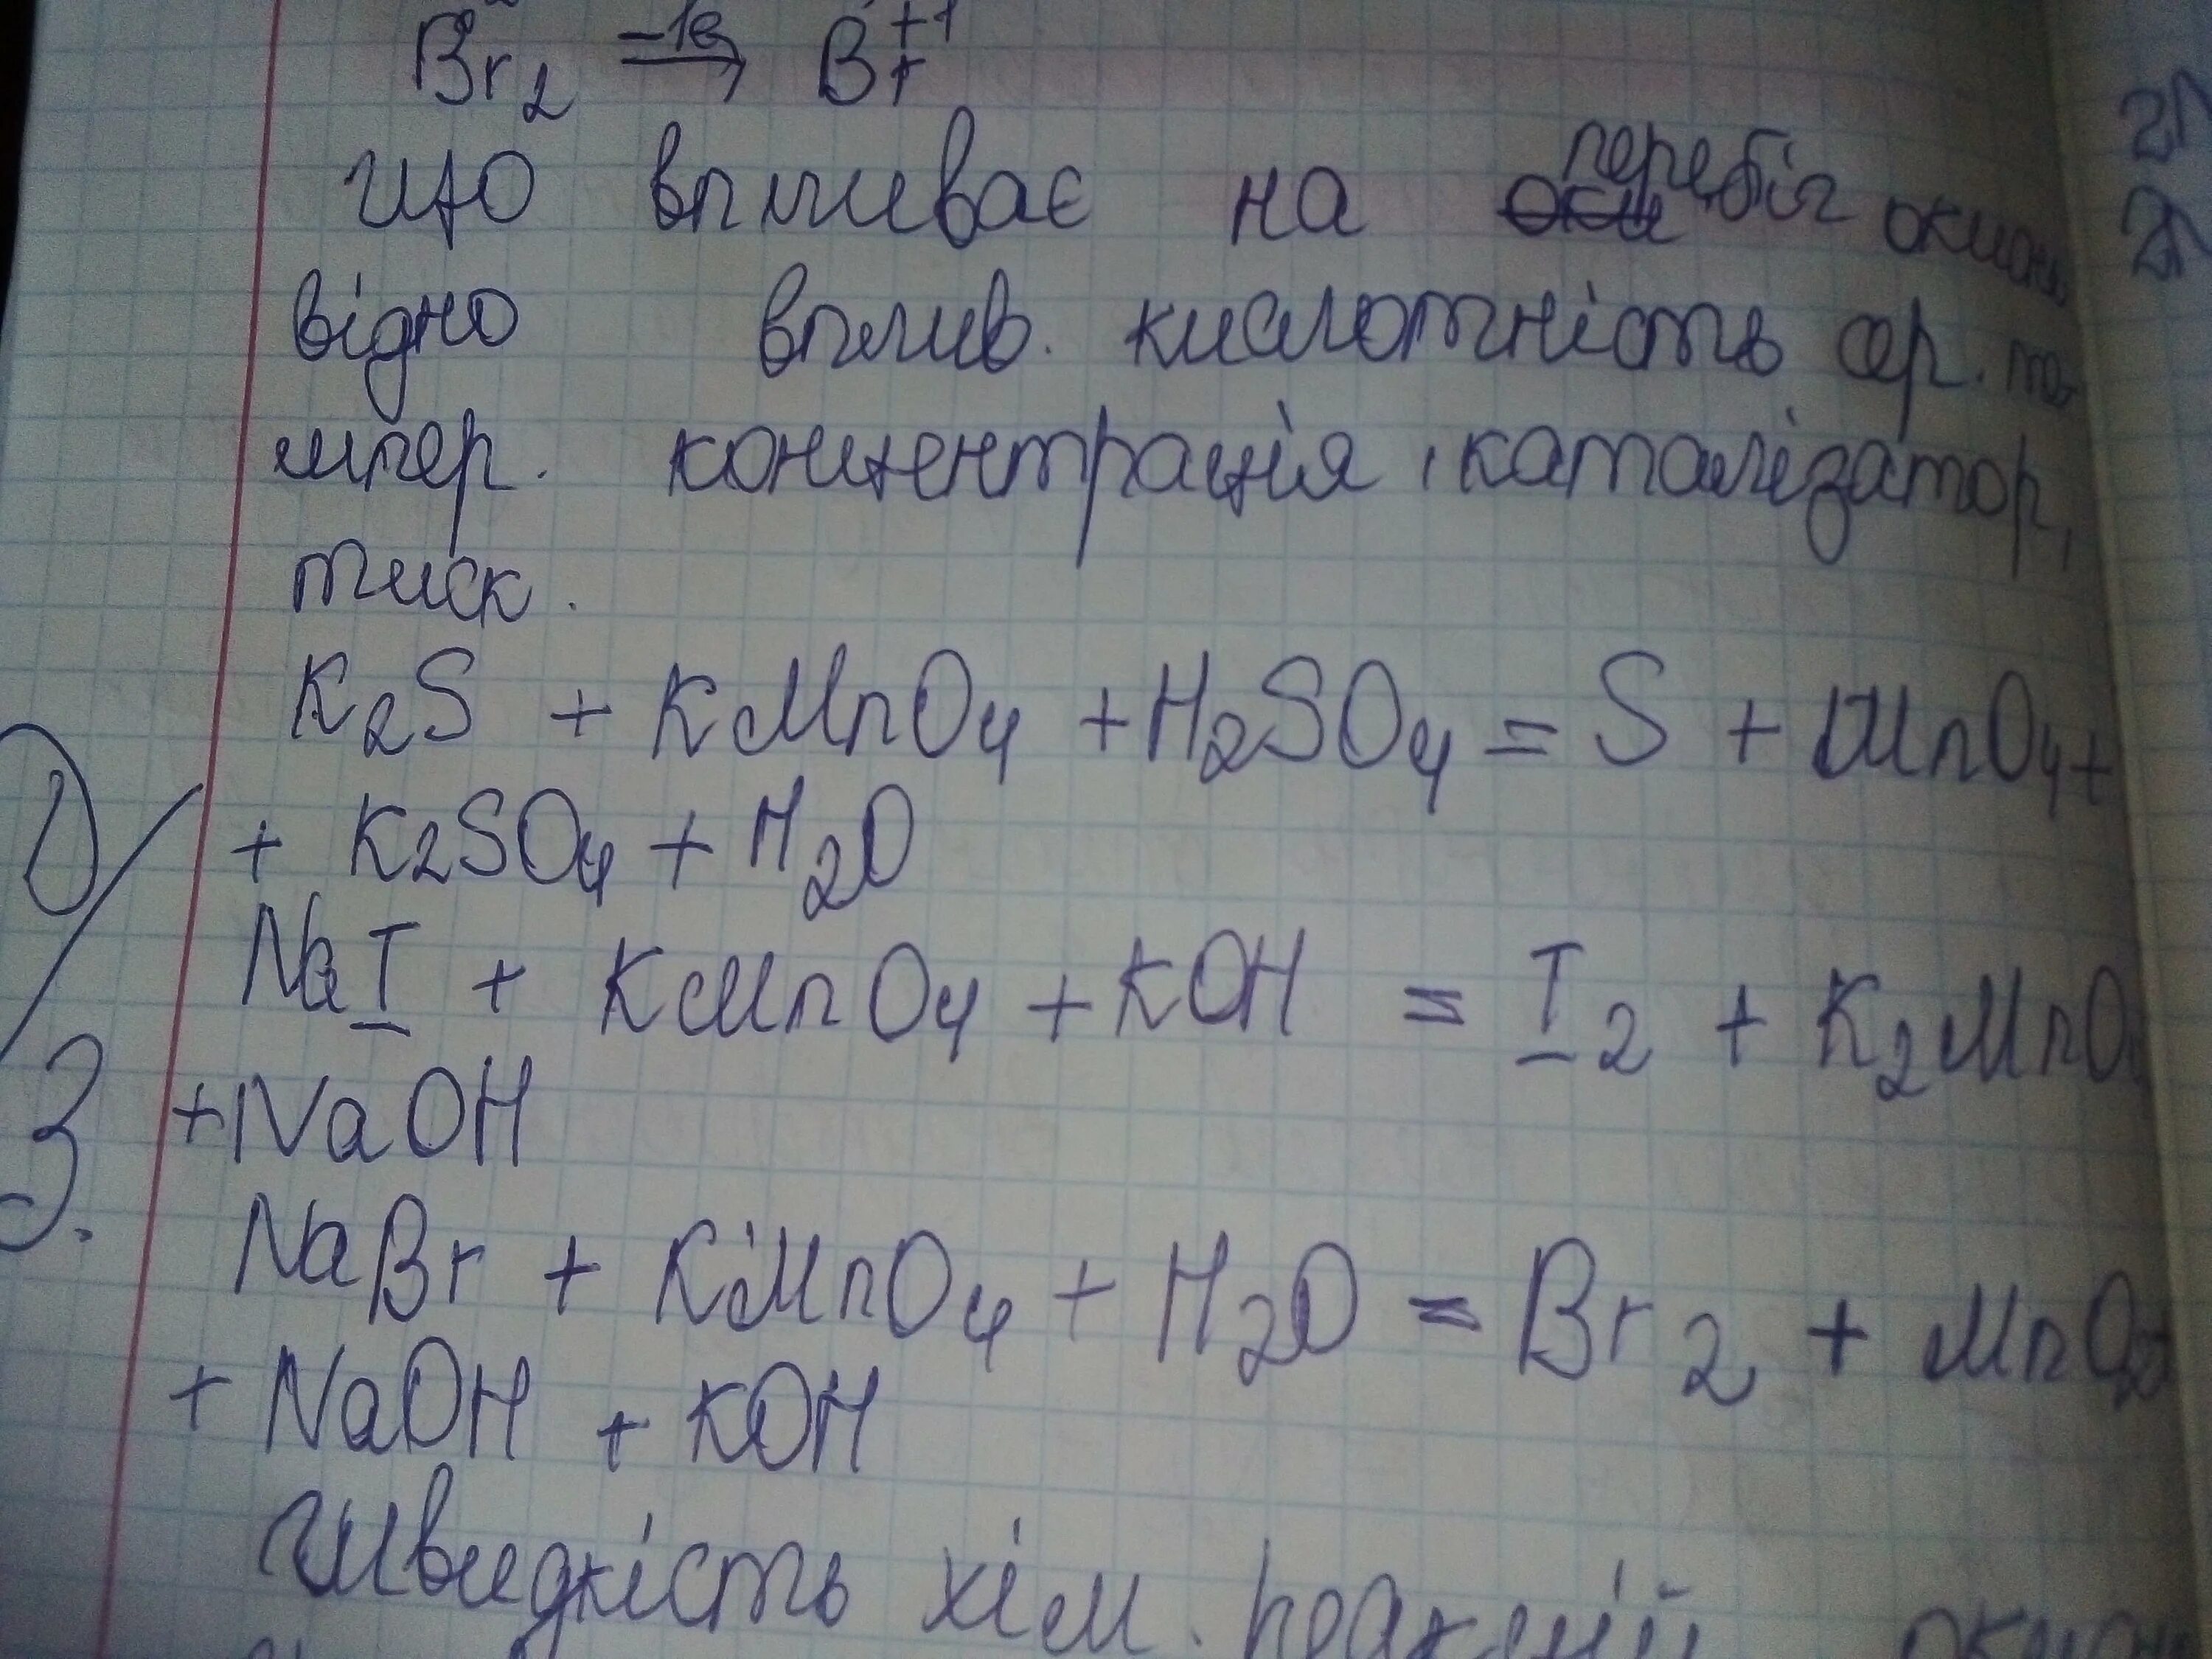 Br₂ —1е→ Br⁺¹
Що впливає на перебіг окисно
відно вплив. кислотність сер. те-
мпер. концентрація, каталізатор,
тиск.
K₂S + KMnO₄ + H₂SO₄ = S + MnO₄ +
+ K₂SO₄ + H₂O
NaI + KMnO₄ + KOH = I₂ + K₂MnO₄
+ NaOH
3.
NaBr + KMnO₄ + H₂O = Br₂ + MnO₂+
+ NaOH + KOH
Швидкість хім. реакцій